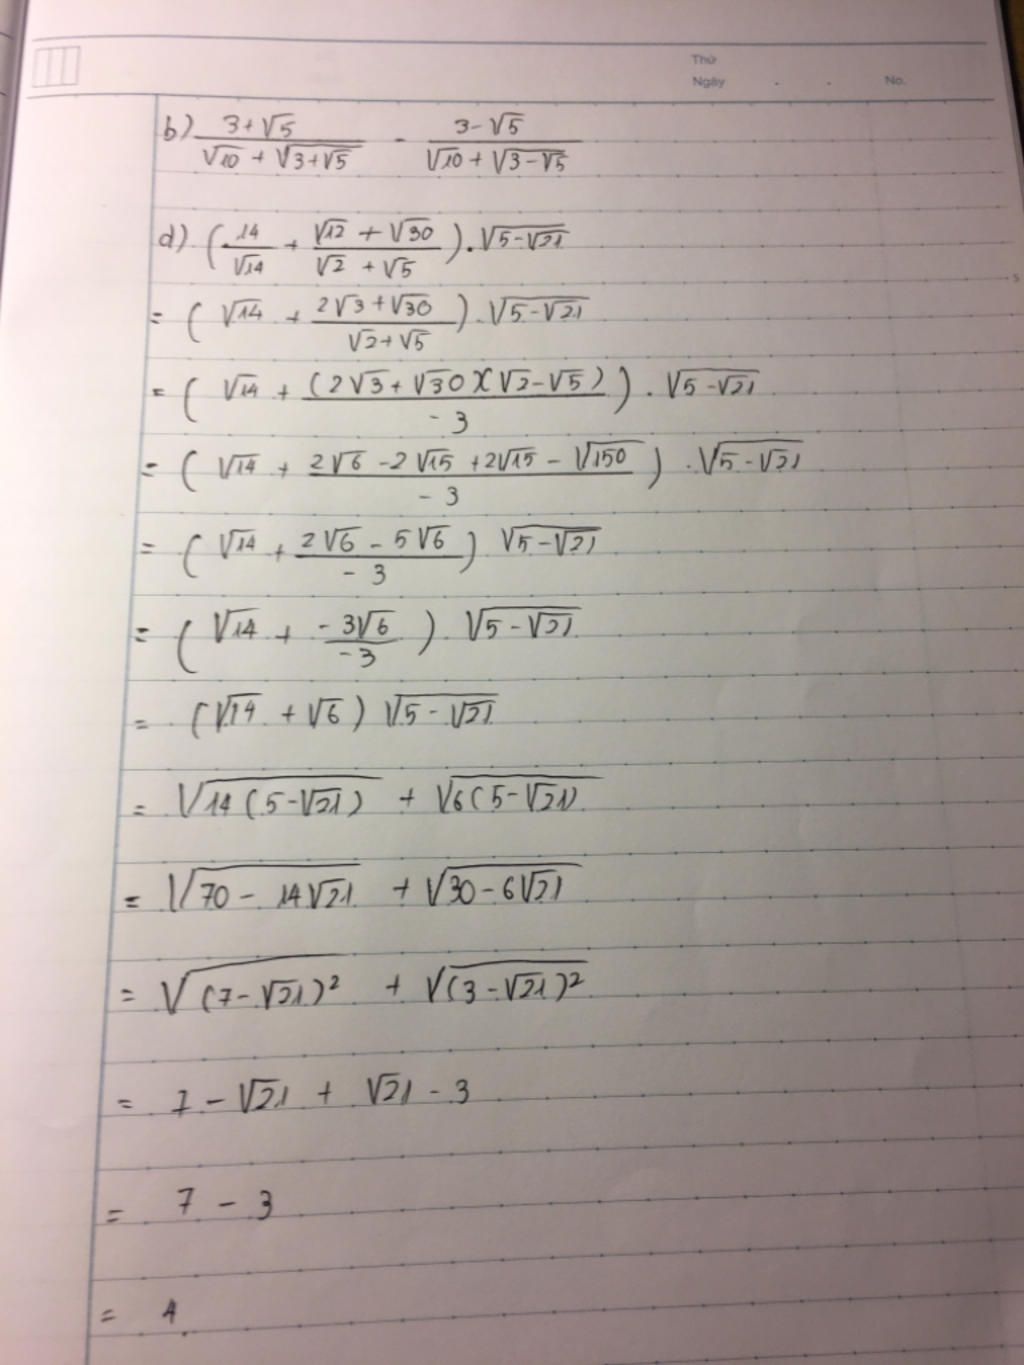 Thứ
Ngày . . No.
b) \frac{3+√5}{√10 + √(3+√5)} - \frac{3-√5}{√10 + √(3-√5)}
d) (\frac{14}{√14} + \frac{√12 + √30}{√2 + √5}) . √(5-√21)
= (√14 + \frac{2√3 + √30}{√2+√5}) . √(5-√21)
= (√14 + \frac{(2√3+√30)(√2-√5)}{-3}) . √(5-√21)
= (√14 + \frac{2√6 - 2√15 + 2√15 - √150}{-3}) . √(5-√21)
= (√14 + \frac{2√6 - 5√6}{-3}) √(5-√21)
= (√14 + \frac{-3√6}{-3}) √(5-√21)
= (√14 + √6) √(5-√21)
= √(14(5-√21)) + √(6(5-√21))
= √(70 - 14√21) + √(30-6√21)
= √((7-√21)²) + √((3-√21)²)
= 7 - √21 + √21 - 3
= 7 - 3
= 4